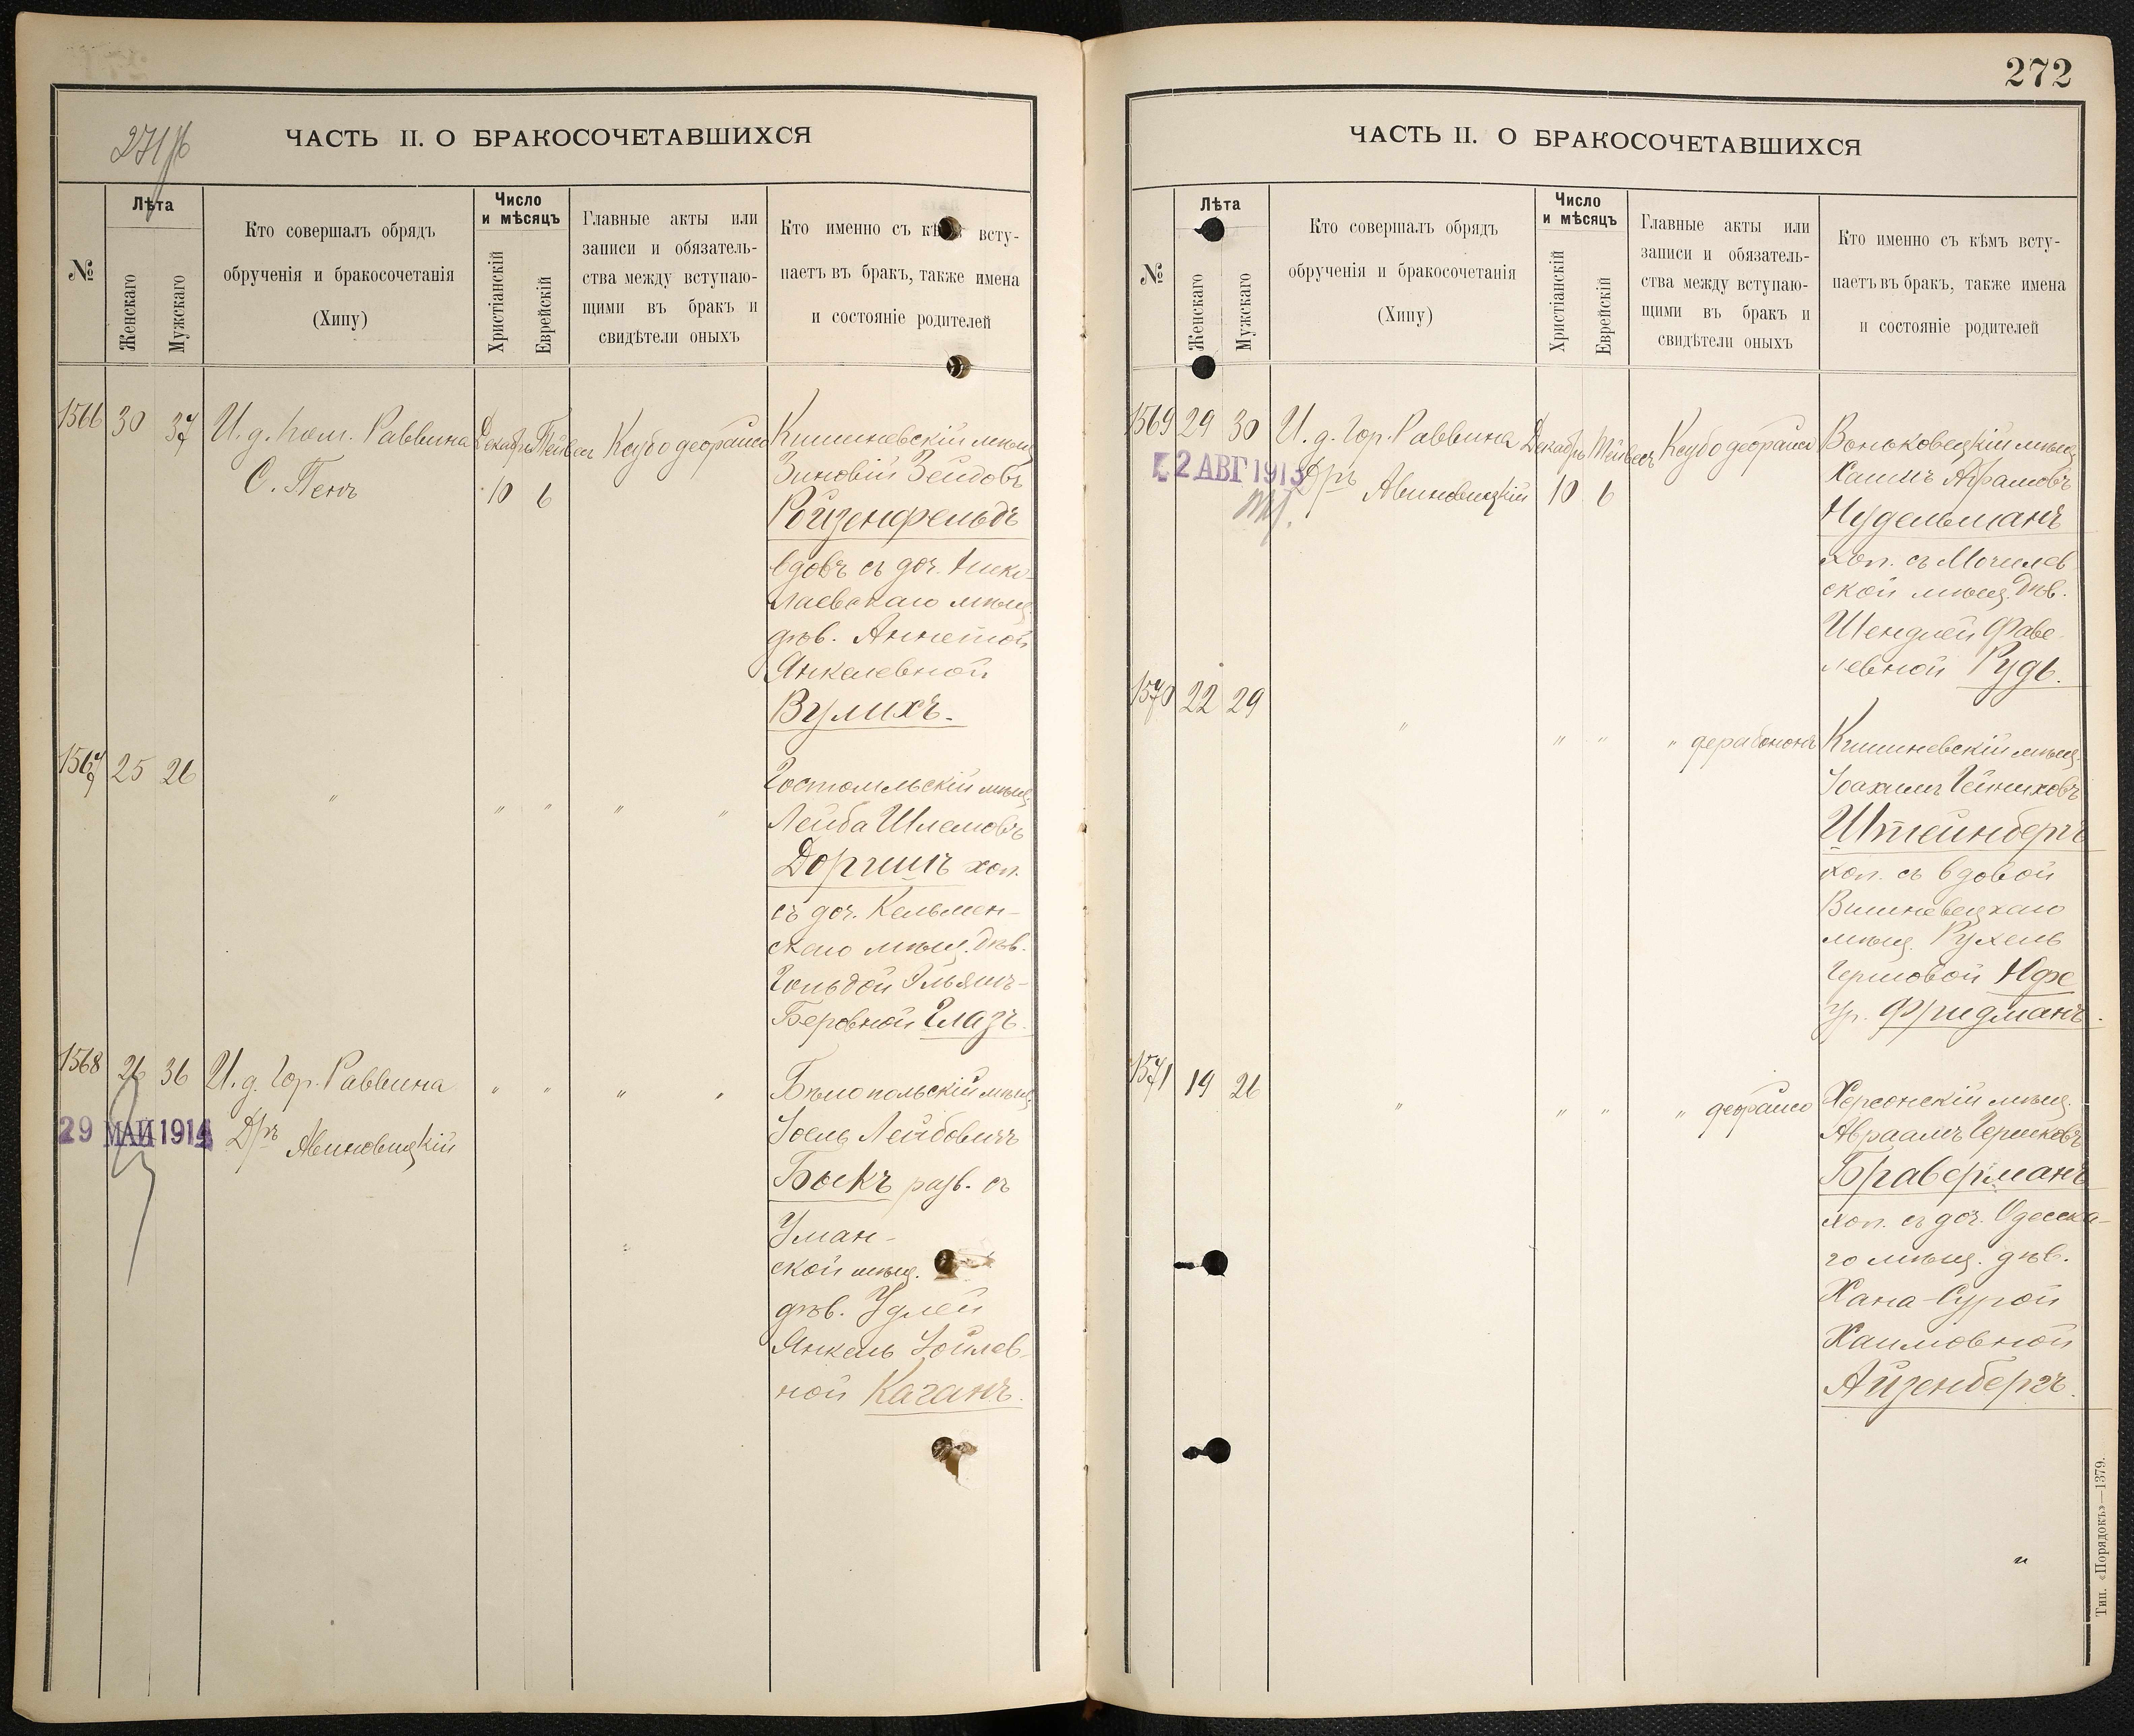 271/б
ЧАСТЬ II. О БРАКОСОЧЕТАВШИХСЯ
№
Лѣта
Женскаго
Мужскаго
Кто совершалъ обрядъ
обрученія и бракосочетанія
(Хипу)
Число
и мѣсяцъ
Христіанскій
Еврейскій
Главные акты или
записи и обязатель-
ства между вступаю-
щими въ бракъ и
свидѣтели оныхъ
Кто именно съ кѣмъ всту-
паетъ въ бракъ, также имена
и состояніе родителей
1566 30 37 И. д. пом. Раввина Декабрь Тейвес Ксубо деорайсо Кишиневскій мѣщ.
С. Пенъ 10 6 Зиновій Зейдовъ
Ройзенфельдъ
вдовъ съ доч. Нико-
лаевскаго мѣщ.
дѣв. Аннетой
Янкелевной
Вулихъ.
1567 25 26 " " " " " Гостомльскій мѣщ.
Лейба Шлемовъ
Доргимъ хол.
съ доч. Кельмен-
скаго мѣщ. дѣв.
Гольдой Эльяшъ-
Беровной Глазъ.
1568 26 36 И. д. Гор. Раввина " " " " Бѣлопольскій мѣщ.
29 МАИ 1914 Дръ Авиновицкій Іоель Лейбовичъ
Быкъ разв. съ
Уман-
ской мѣщ.
дѣв. Удлей
Янкель Іойлев-
ной Каганъ.
272
ЧАСТЬ II. О БРАКОСОЧЕТАВШИХСЯ
№
Лѣта
Женскаго
Мужскаго
Кто совершалъ обрядъ
обрученія и бракосочетанія
(Хипу)
Число
и мѣсяцъ
Христіанскій
Еврейскій
Главные акты или
записи и обязатель-
ства между вступаю-
щими въ бракъ и
свидѣтели оныхъ
Кто именно съ кѣмъ всту-
паетъ въ бракъ, также имена
и состояніе родителей
1569 29 30 И. д. Гор. Раввина Декабрь Тейвесъ Ксубо деорайсо Воньковецкій мѣщ.
2 АВГ 1913 Дръ Авиновицкій 10 6 Хаимъ Абрамовъ
Нудельманъ
хол. съ Могилев
ской мѣщ. дѣв.
Шендлей Фаве
левной Рудь.
1570 22 29 " " " " дерабононъ Кишиневскій мѣщ.
Іоахимъ Гейниховъ
Штейнбергъ
хол. съ вдовой
Вишневецкаго
мѣщ. Рухель
Гершовой Нфе
ур. Фридманъ.
1571 19 26 " " " " деорайсо Херсонскій мѣщ.
Авраамъ Гершковъ
Браверманъ
хол. съ доч. Одесска-
го мѣщ. дѣв.
Хана-Сурой
Хаимовной
Айзенбергъ.
Тип. «Порядокъ»—1379.